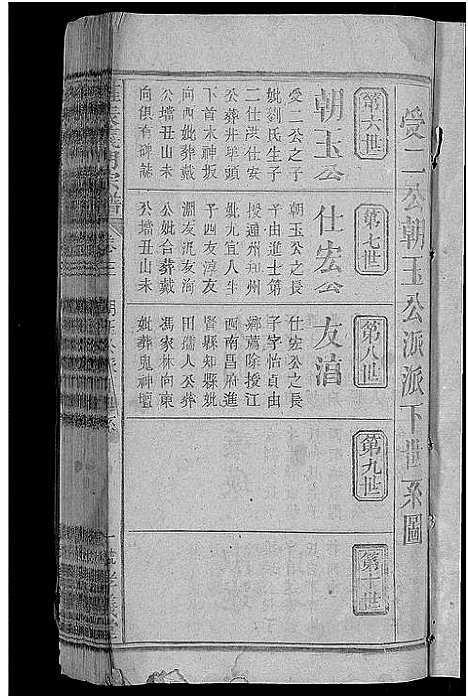 受二公朝玉公派派下世系圖
第六世
朝玉公
受二公之子
妣劉氏生子
二仕洪仕安
公葬井塝頭
下首水神坂
向西妣葬戴
公壋丑山未
向俱有碑誌
第七世
仕宏公
朝玉公之長
子由進士第
授通州知州
妣九宜人生
子四友淳友
淵友泥友淌
公妣台葬戴
公壋丑山未
第八世
友淌
仕宏公之長
子字怡貞由
鄉薦除授江
西南昌府進
賢縣知縣妣
田孺人公葬
馮家林向東
妣葬鬼神壇
第九世
第十世